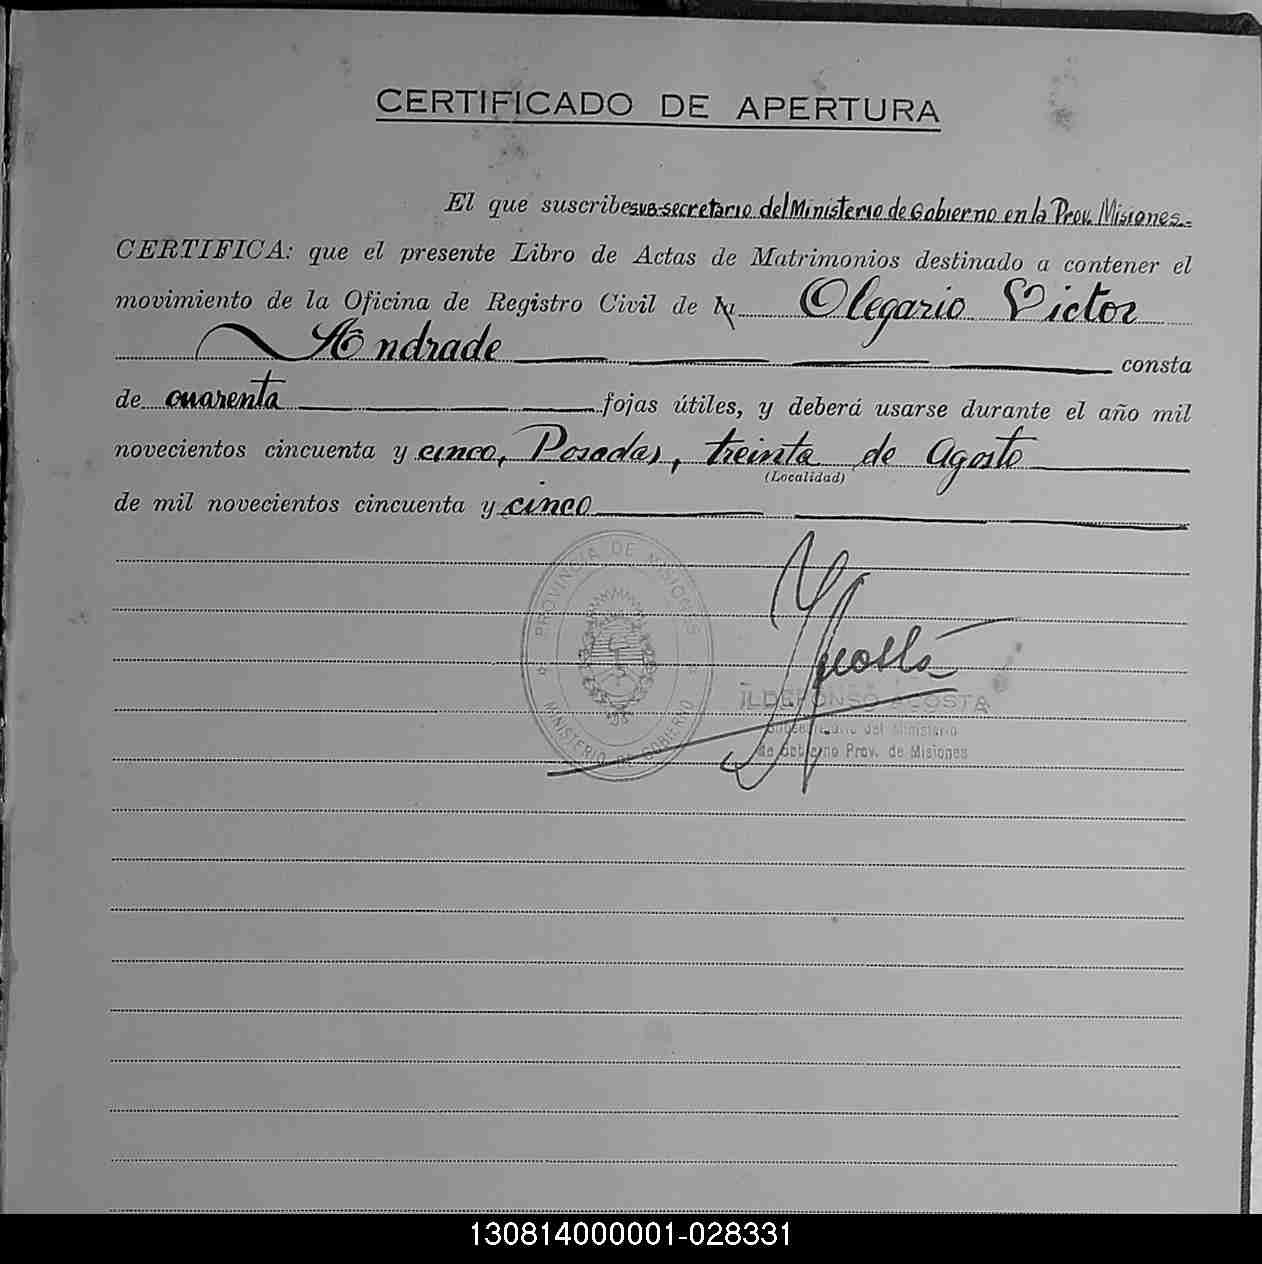 CERTIFICADO DE APERTURA
El que suscribe sub-secretario del Ministerio de Gobierno en la Prov. Misiones.-
CERTIFICA: que el presente Libro de Actas de Matrimonios destinado a contener el
movimiento de la Oficina de Registro Civil de Olegario Victor
Andrade consta
de cuarenta fojas útiles, y deberá usarse durante el año mil
novecientos cincuenta y cinco, Posadas, treinta de Agosto
(Localidad)
de mil novecientos cincuenta y cinco
PROVINCIA DE MISIONES
MINISTERIO DE GOBIERNO
Acosta
ILDEFONSO ACOSTA
Subsecretario del Ministerio
de Gobierno Prov. de Misiones
130814000001-028331